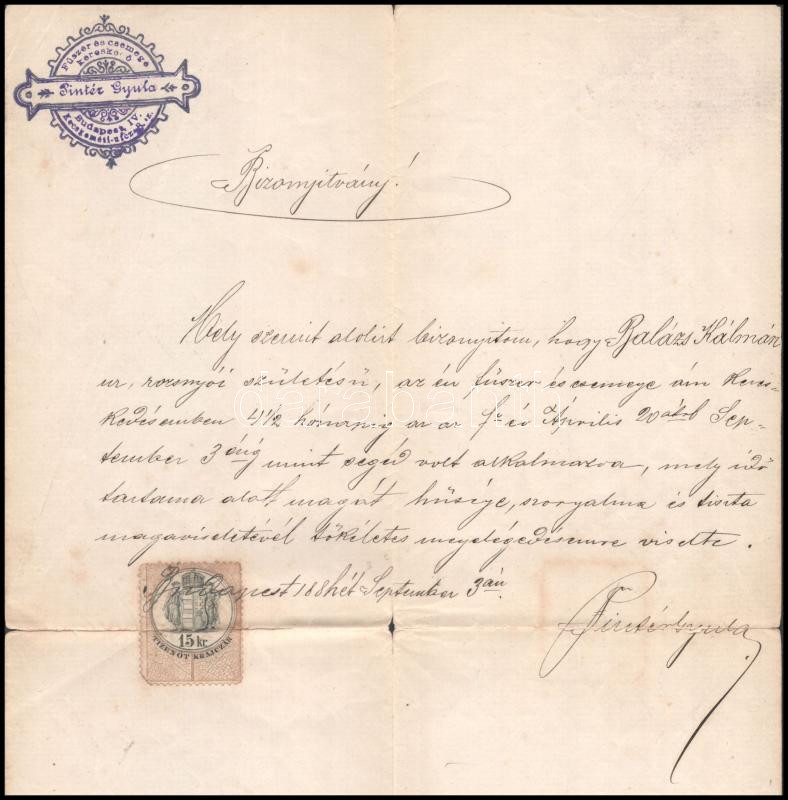 Fűszer és csemege
kereskedő
Pintér Gyula
Budapest, IV.
Kecskeméti-utcza
Bizonyitvány!
Mely szerint alolirt bizonyitom, hogy Balázs Kálmán
ur, rozsnyói születésü, az én füszer és csemege áru keres-
kedésemben 4 1/2 hónapig az az f. év Április 20 ától Sep-
tember 3 áig mint segéd volt alkalmazva, mely idő
tartama alatt magát hüsége, szorgalma és tiszta
magaviseletével tökéletes megelégedésemre viselte.
Budapest 188 hét September 3 án
Pintér Gyula
15 kr.
TIZENÖT KRAJCZÁR
darabanth